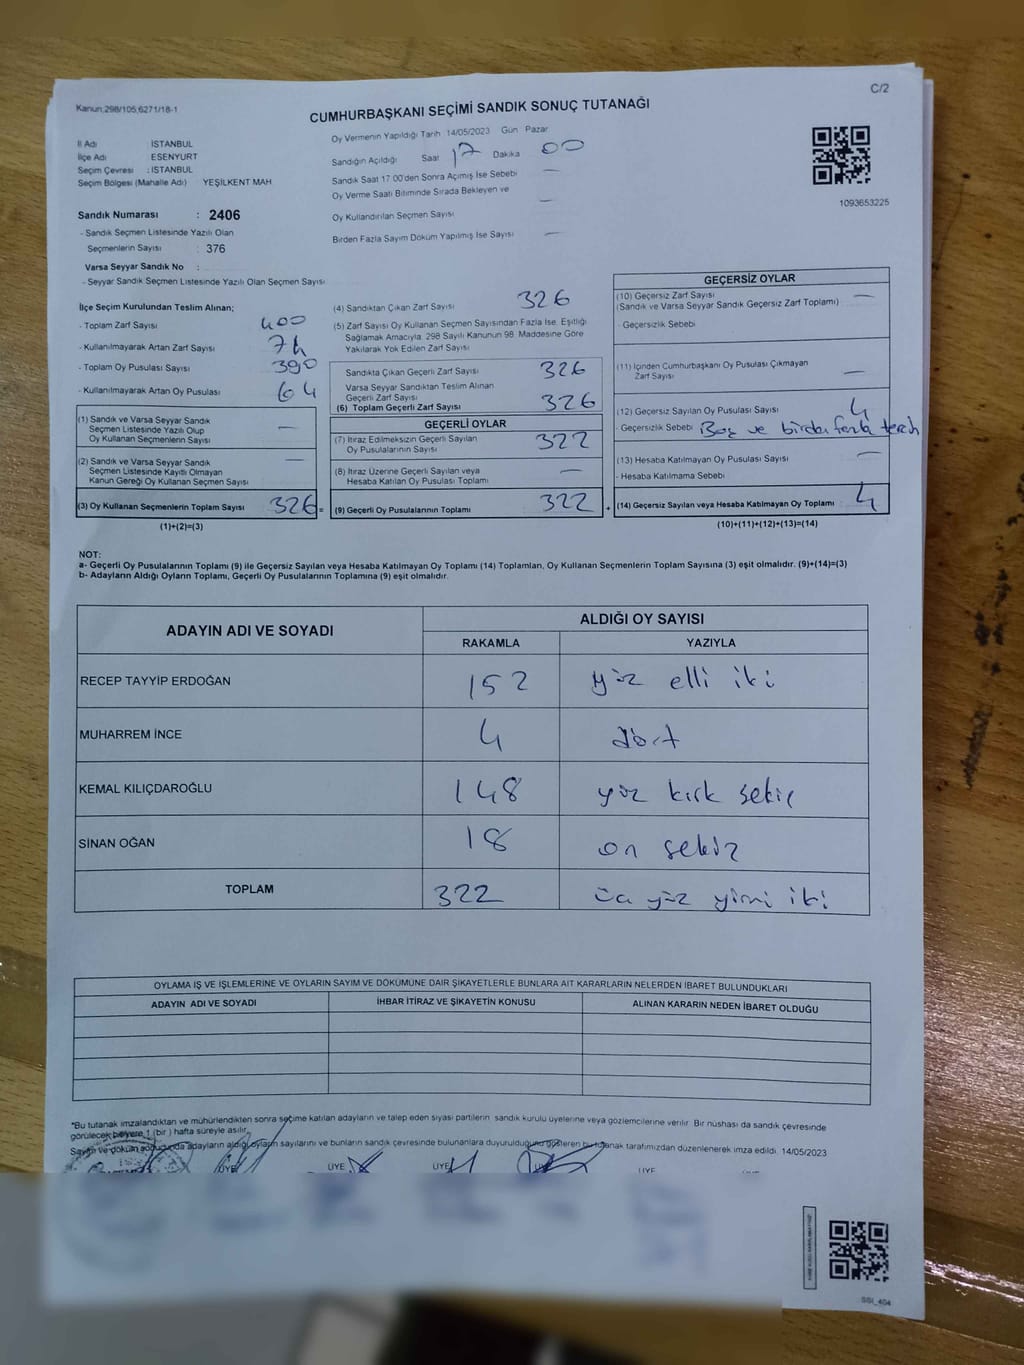 C/2
Kanun:298/105;6271/18-1
CUMHURBAŞKANI SEÇİMİ SANDIK SONUÇ TUTANAĞI
İl Adı : İSTANBUL
İlçe Adı : ESENYURT
Seçim Çevresi : İSTANBUL
Seçim Bölgesi (Mahalle Adı) YEŞİLKENT MAH
Sandık Numarası : 2406
- Sandık Seçmen Listesinde Yazılı Olan
Seçmenlerin Sayısı : 376
Varsa Seyyar Sandık No :
- Seyyar Sandık Seçmen Listesinde Yazılı Olan Seçmen Sayısı
Oy Vermenin Yapıldığı Tarih 14/05/2023 Gün Pazar
Sandığın Açıldığı Saat 17 Dakika 00
Sandık Saat 17:00'den Sonra Açılmış İse Sebebi —
Oy Verme Saati Bitiminde Sırada Bekleyen ve
Oy Kullandırılan Seçmen Sayısı —
Birden Fazla Sayım Döküm Yapılmış İse Sayısı —
1093653225
İlçe Seçim Kurulundan Teslim Alınan;
- Toplam Zarf Sayısı 400
- Kullanılmayarak Artan Zarf Sayısı 74
- Toplam Oy Pusulası Sayısı 390
- Kullanılmayarak Artan Oy Pusulası 64
(1) Sandık ve Varsa Seyyar Sandık
Seçmen Listesinde Yazılı Olup
Oy Kullanan Seçmenlerin Sayısı —
(2) Sandık ve Varsa Seyyar Sandık
Seçmen Listesinde Kayıtlı Olmayan
Kanun Gereği Oy Kullanan Seçmen Sayısı —
(3) Oy Kullanan Seçmenlerin Toplam Sayısı 326 =
(1)+(2)=(3)
(4) Sandıktan Çıkan Zarf Sayısı 326
(5) Zarf Sayısı Oy Kullanan Seçmen Sayısından Fazla İse, Eşitliği
Sağlamak Amacıyla, 298 Sayılı Kanunun 98. Maddesine Göre
Yakılarak Yok Edilen Zarf Sayısı
Sandıkta Çıkan Geçerli Zarf Sayısı 326
Varsa Seyyar Sandıktan Teslim Alınan
Geçerli Zarf Sayısı
(6) Toplam Geçerli Zarf Sayısı 326
GEÇERLİ OYLAR
(7) İtiraz Edilmeksizin Geçerli Sayılan
Oy Pusulalarının Sayısı 322
(8) İtiraz Üzerine Geçerli Sayılan veya
Hesaba Katılan Oy Pusulası Toplamı —
(9) Geçerli Oy Pusulalarının Toplamı 322 +
GEÇERSİZ OYLAR
(10) Geçersiz Zarf Sayısı —
(Sandık ve Varsa Seyyar Sandık Geçersiz Zarf Toplamı)
- Geçersizlik Sebebi
(11) İçinden Cumhurbaşkanı Oy Pusulası Çıkmayan
Zarf Sayısı —
(12) Geçersiz Sayılan Oy Pusulası Sayısı 4
- Geçersizlik Sebebi Boş ve birden fazla tercih
(13) Hesaba Katılmayan Oy Pusulası Sayısı —
- Hesaba Katılmama Sebebi
(14) Geçersiz Sayılan veya Hesaba Katılmayan Oy Toplamı 4
(10)+(11)+(12)+(13)=(14)
NOT:
a- Geçerli Oy Pusulalarının Toplamı (9) ile Geçersiz Sayılan veya Hesaba Katılmayan Oy Toplamı (14) Toplamları, Oy Kullanan Seçmenlerin Toplam Sayısına (3) eşit olmalıdır. (9)+(14)=(3)
b- Adayların Aldığı Oyların Toplamı, Geçerli Oy Pusulalarının Toplamına (9) eşit olmalıdır.
ADAYIN ADI VE SOYADI
ALDIĞI OY SAYISI
RAKAMLA YAZIYLA
RECEP TAYYİP ERDOĞAN 152 yüz elli iki
MUHARREM İNCE 4 dört
KEMAL KILIÇDAROĞLU 148 yüz kırk sekiz
SİNAN OĞAN 18 on sekiz
TOPLAM 322 üç yüz yirmi iki
OYLAMA İŞ VE İŞLEMLERİNE VE OYLARIN SAYIM VE DÖKÜMÜNE DAİR ŞİKAYETLERLE BUNLARA AİT KARARLARIN NELERDEN İBARET BULUNDUKLARI
ADAYIN ADI VE SOYADI İHBAR İTİRAZ VE ŞİKAYETİN KONUSU ALINAN KARARIN NEDEN İBARET OLDUĞU
*Bu tutanak imzalandıktan ve mühürlendikten sonra seçime katılan adayların ve talep eden siyasi partilerin sandık kurulu üyelerine veya gözlemcilerine verilir. Bir nüshası da sandık çevresinde
görülecek bir yere 1 (bir) hafta süreyle asılır.
Sayım ve döküm sonucunda adayların aldığı oyların sayılarını ve bunların sandık çevresinde bulunanlara duyurulduğunu gösteren bu tutanak tarafımızdan düzenlenerek imza edildi. 14/05/2023
ÜYE ÜYE ÜYE ÜYE ÜYE
SSI_404